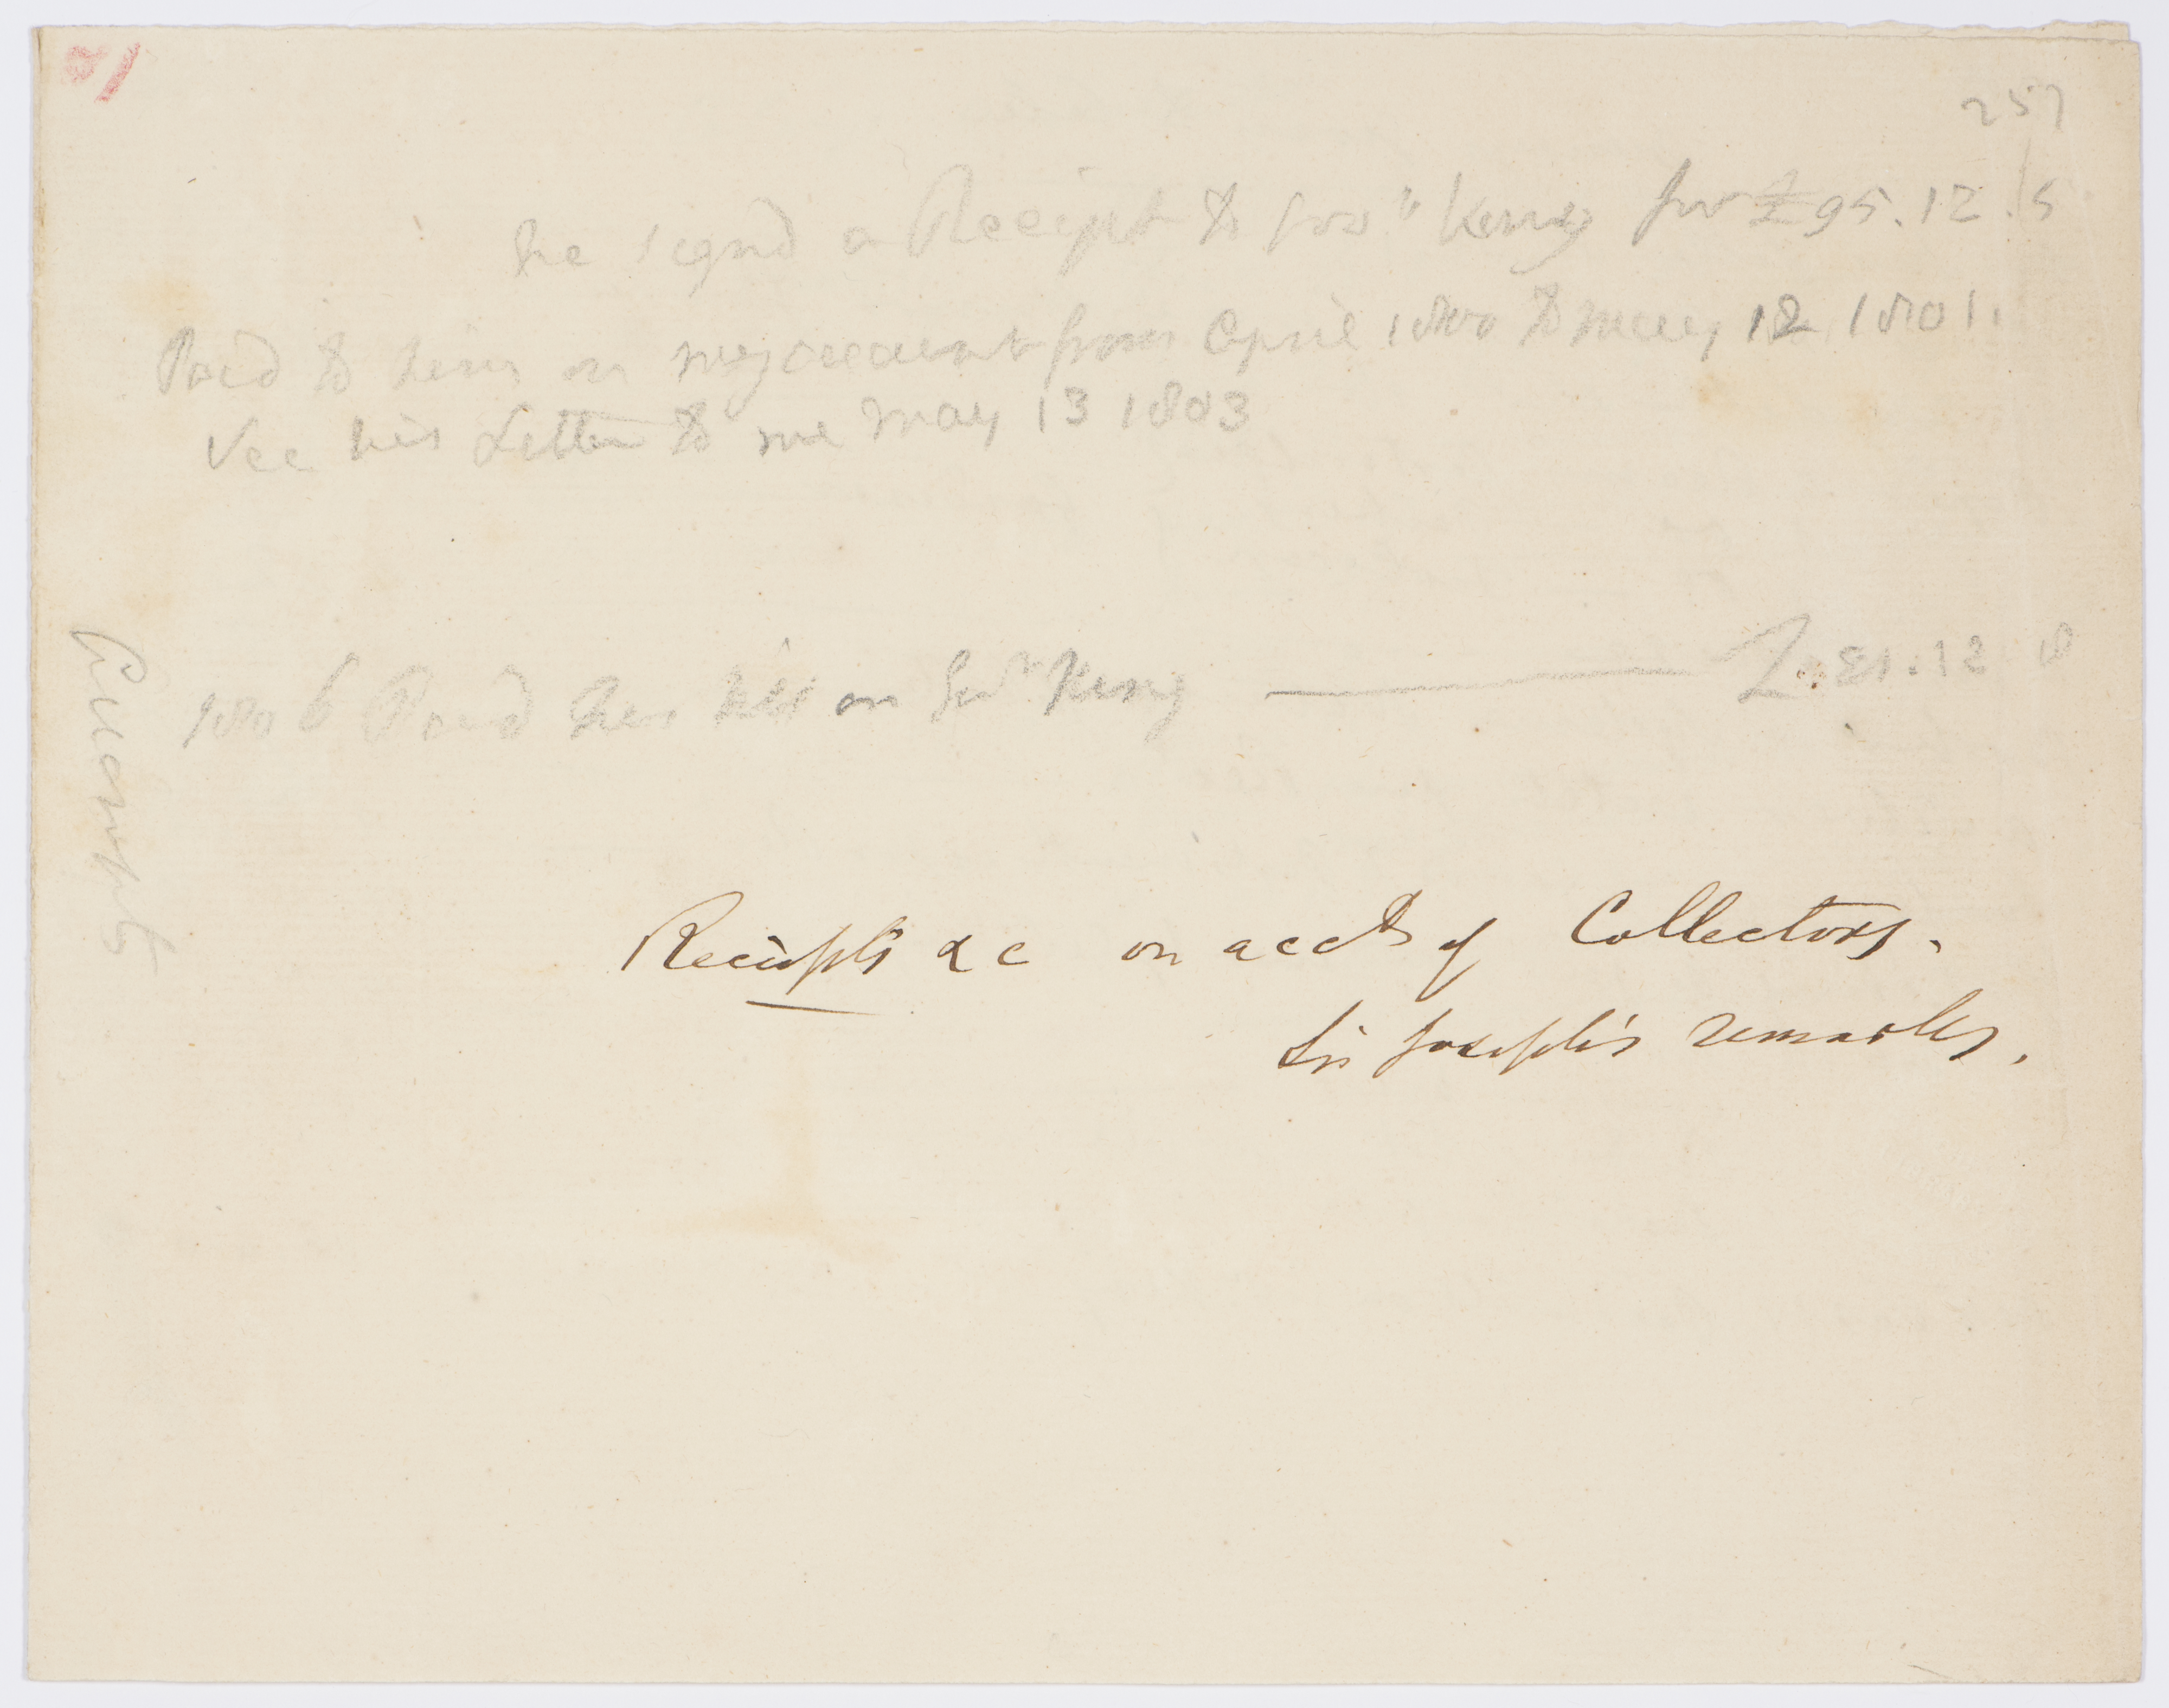 257
he signd a Receipt to Govr King for £95.12.5
Paid to him on my account from April 1800 to may 12 1801.
See his Letter to me may 13 1803
1806 Paid his bill on Govr King — £.31.12 8
Accounts
Receipts &c on acct of Collectors.
Sir Joseph's remarks.